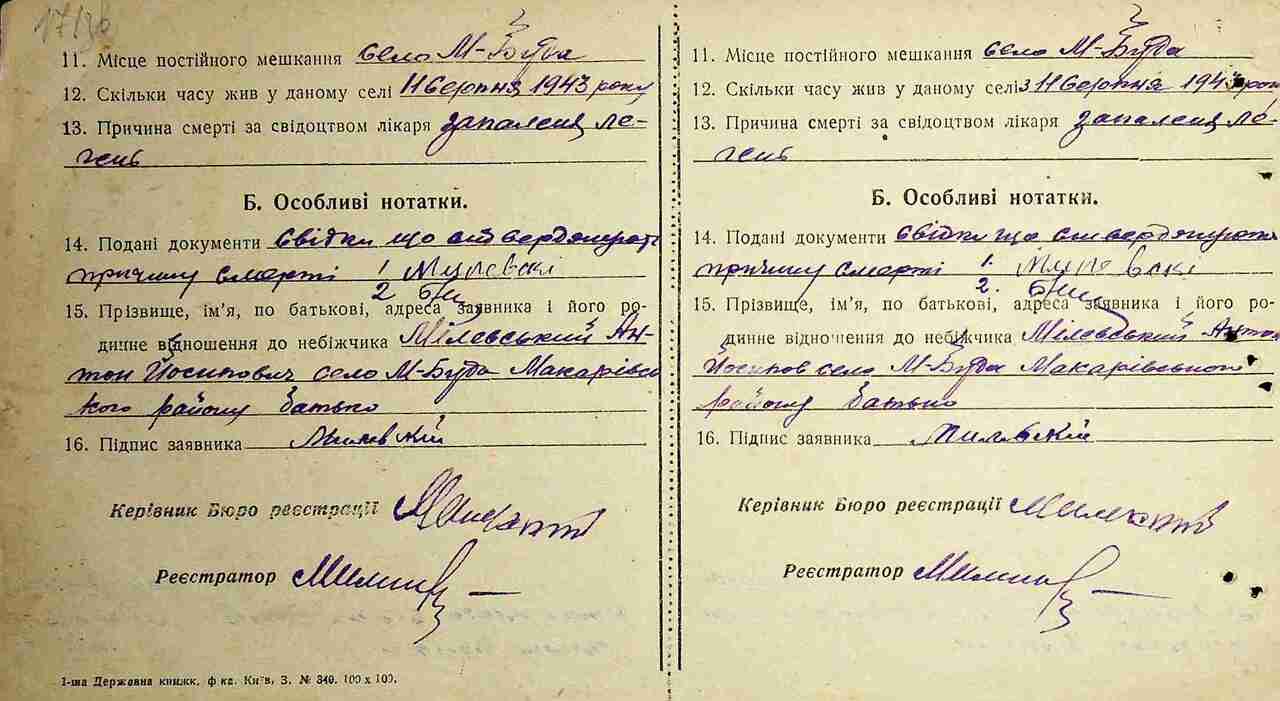 17/36
11. Місце постійного мешкання село М-Буда
12. Скільки часу жив у даному селі 11 серпня 1943 року
13. Причина смерті за свідоцтвом лікаря запалення ле-
гень
Б. Особливі нотатки.
14. Подані документи свідки що стверджують
причину смерті 1
2
15. Прізвище, ім'я, по батькові, адреса заявника і його ро-
динне відношення до небіжчика Мілевський Ан-
тон Йосипович село М-Буда Макарівсь
кого району батько
16. Підпис заявника
Керівник Бюро реєстрації
Реєстратор
1-ша Державна книжк. ф-ка. Київ, З. № 340. 100 х 100.
11. Місце постійного мешкання село М-Буда
12. Скільки часу жив у даному селі з 11 серпня 1943 року
13. Причина смерті за свідоцтвом лікаря запалення ле-
гень
Б. Особливі нотатки.
14. Подані документи свідки що стверджують
причину смерті 1.
2.
15. Прізвище, ім'я, по батькові, адреса заявника і його ро-
динне відношення до небіжчика Мілевський Антон
Йосипов село М-Буда Макарівського
району батько
16. Підпис заявника
Керівник Бюро реєстрації
Реєстратор